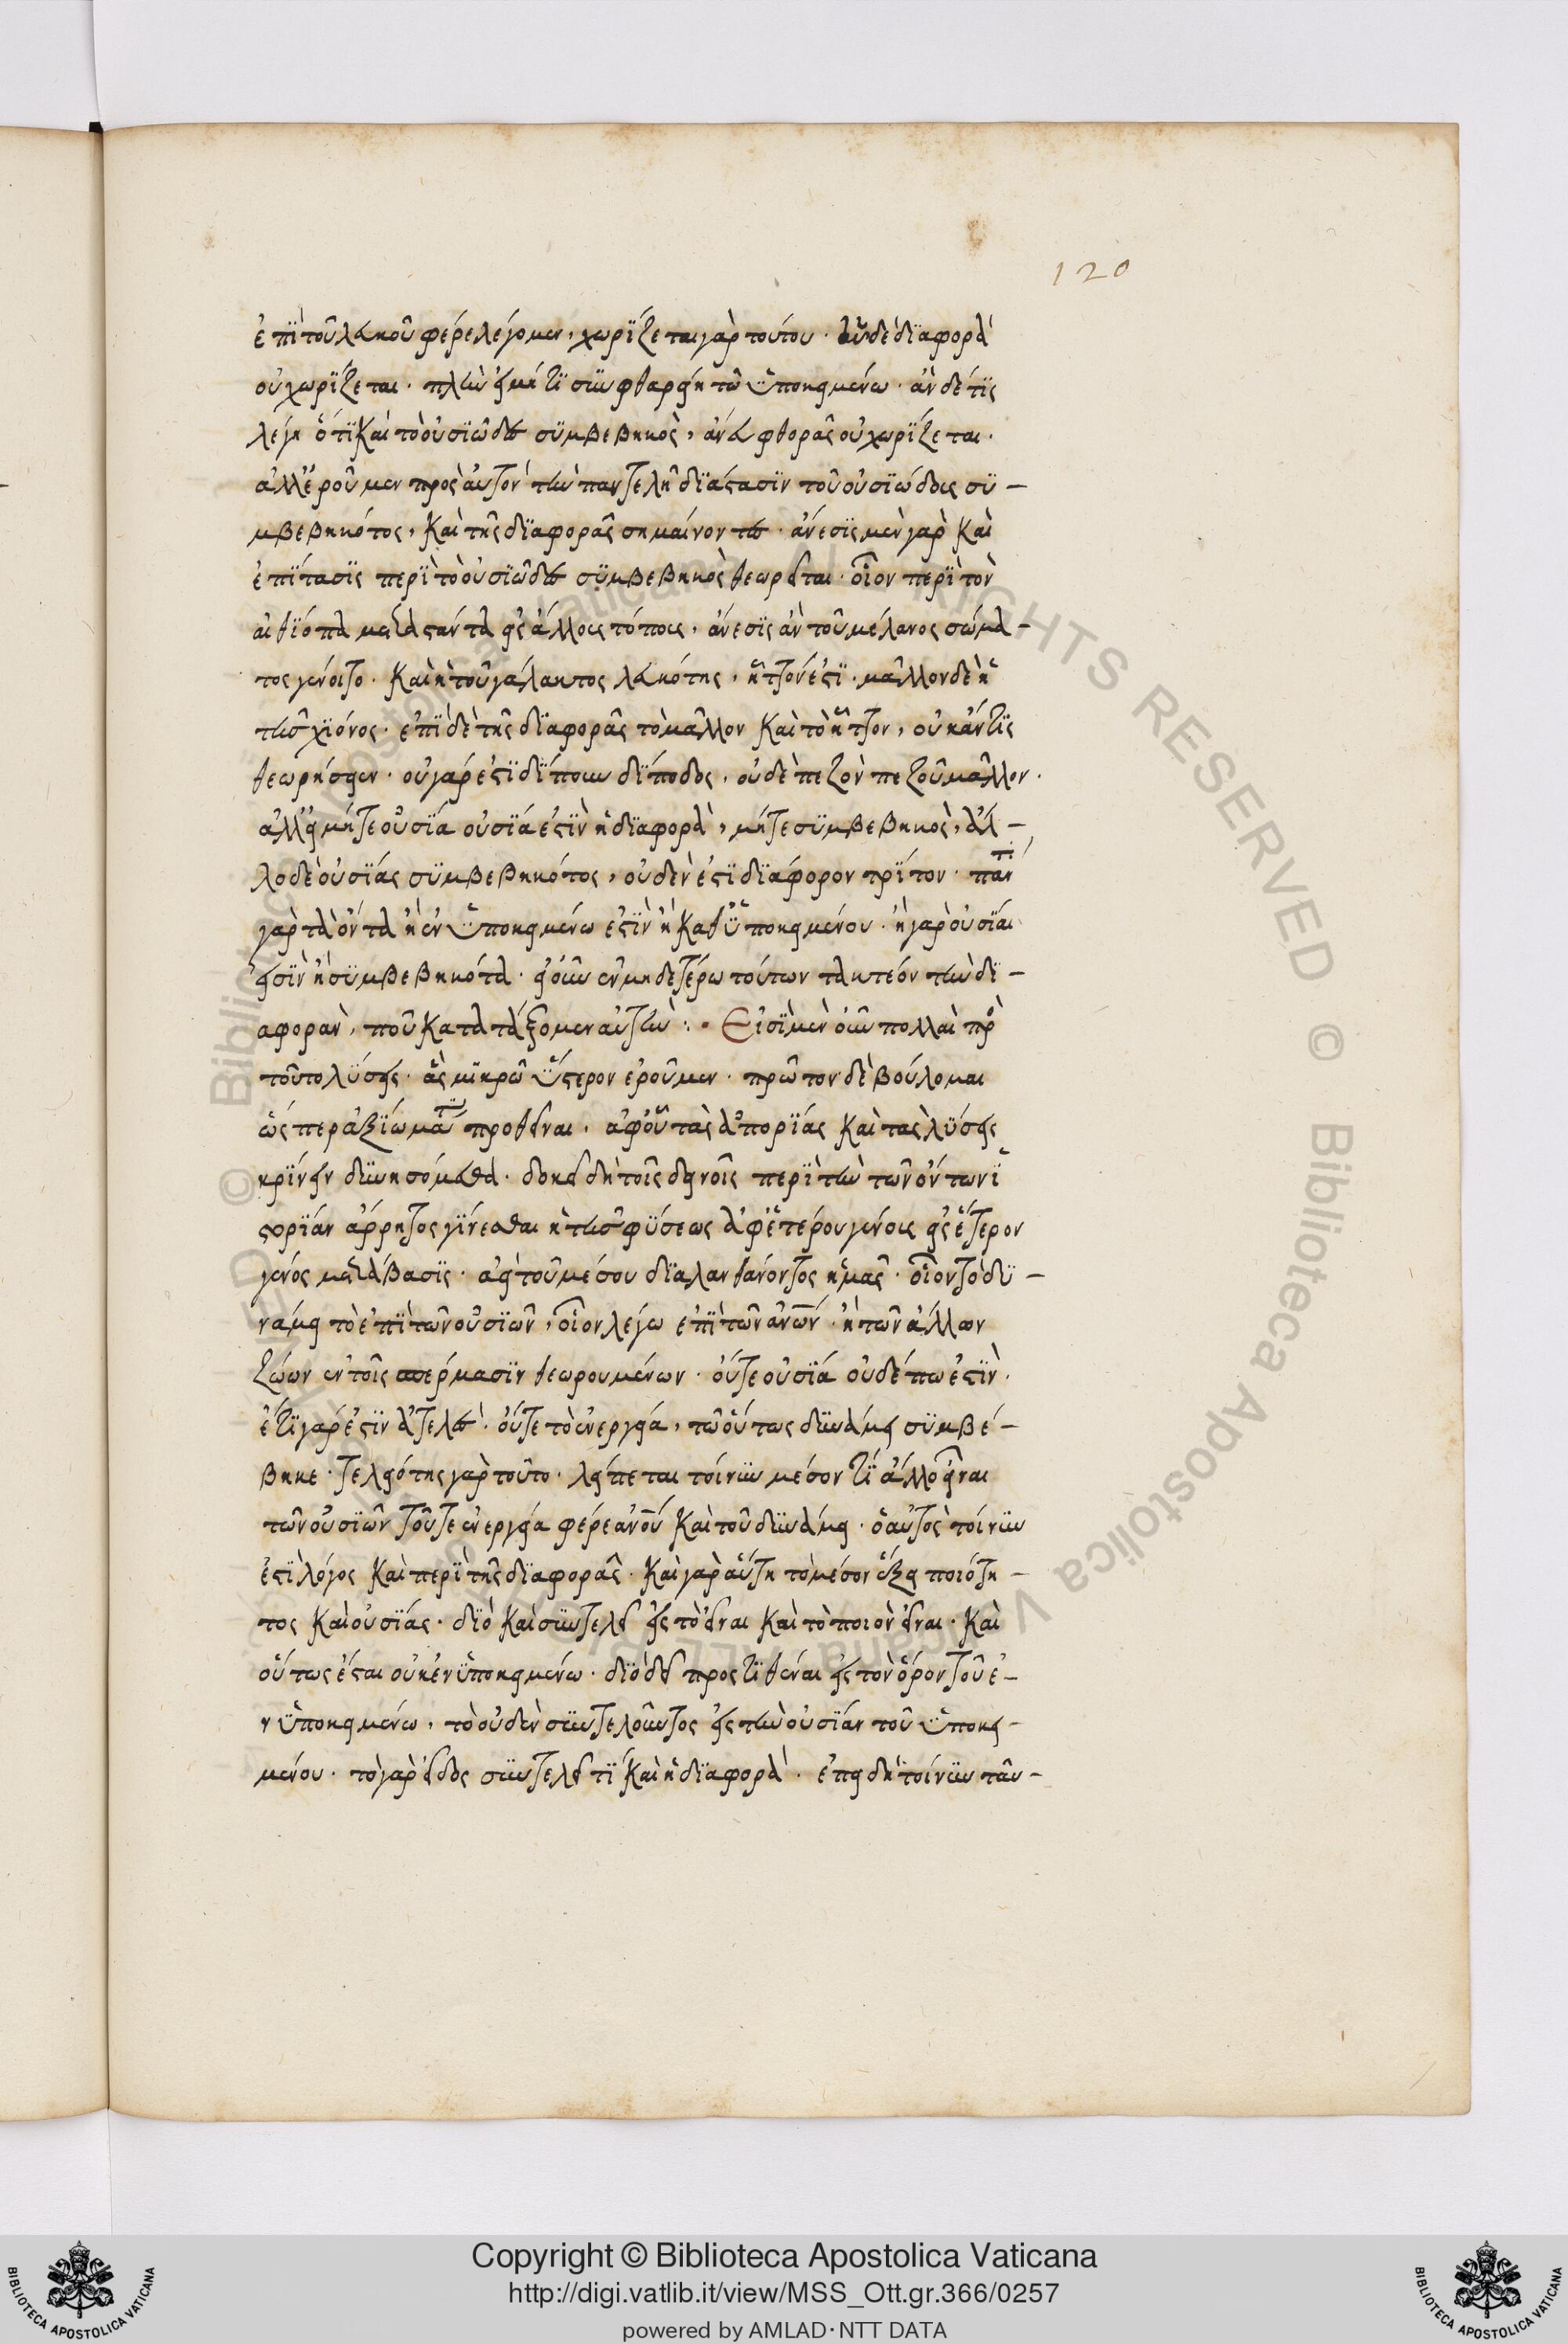 120
ἐπὶ τοῦ λευκοῦ φέρε λέγομεν, χωρίζεται γὰρ τούτου. ἡ δὲ διαφορὰ
οὐ χωρίζεται. πλὴν εἰ μή τι συμφθαρείη τῶ ὑποκειμένω. ἂν δέ τις
λέγη ὅτι καὶ τὸ οὐσιῶδες συμβεβηκὸς, ἄνευ φθορᾶς οὐ χωρίζεται.
ἀλλ' ἐροῦμεν πρὸς αὐτὸν τὴν παντελῆ διάστασιν τοῦ οὐσιώδους συ-
μβεβηκότος, καὶ τῆς διαφορᾶς σημαίνοντες. ἄνεσις μὲν γὰρ καὶ
ἐπίτασις περὶ τὸ οὐσιῶδες συμβεβηκὸς θεωρεῖται. οἷον περὶ τὸν
αἰθίοπα μεταστάντα εἰς ἄλλους τόπους, ἄνεσις ἂν τοῦ μέλανος σώμα-
τος γένοιτο. καὶ ἡ τοῦ γάλακτος λευκότης, ἧττόν ἐστι. μᾶλλον δὲ ἡ
τῆς χιόνος. ἐπὶ δὲ τῆς διαφορᾶς τὸ μᾶλλον καὶ τὸ ἧττον, οὐκ ἄν τις
θεωρήσειεν. οὐ γάρ ἐστι δίπουν δίποδος, οὐδὲ πεζὸν πεζοῦ μᾶλλον.
ἀλλ' εἰ μήτε οὐσία οὐσία ἐστὶν ἡ διαφορὰ, μήτε συμβεβηκὸς, ἄλ-
λο δὲ οὐσίας συμβεβηκότος, οὐδὲν ἐστὶ διάφορον τρίτον. πάντ
γὰρ τὰ ὄντα ἢ ἐν ὑποκειμένω ἐστὶν ἢ καθ' ὑποκειμένου. ἢ γὰρ οὐσίαι
εἰσὶν ἢ συμβεβηκότα. εἰ οὖν ἐν μηδετέρω τούτων τακτέον τὴν δι-
αφορὰν, ποῦ κατατάξομεν αὐτήν: Εἰσὶ μὲν οὖν πολλαὶ πρὸς
τοῦτο λύσεις. ἃς μικρῶ ὕστερον ἐροῦμεν. πρῶτον δὲ βούλομαι
ὥσπερ ἀξίωμά τι προθεῖναι, ἀφ' οὗ τὰς ἀπορίας καὶ τὰς λύσεις
κρίνειν δυνησόμεθα. δοκεῖ δὴ τοῖς δεινοῖς περὶ τὴν τῶν ὄντων ἱ
στορίαν ἄρρητος γίνεσθαι ἡ τῆς φύσεως ἀφ' ἑτέρου γένους εἰς ἕτερον
γένος μετάβασις. ἀεὶ τοῦ μέσου διαλανθάνοντος ἡμᾶς. οἷον τὸ δυ-
νάμει τὸ ἐπὶ τῶν οὐσιῶν, οἷον λέγω ἐπὶ τῶν ἀνῶν. ἢ τῶν ἄλλων
ζώων ἐν τοῖς σπέρμασιν θεωρουμένων. οὔτε οὐσία οὐδέπω ἐστὶν.
ἔτι γάρ ἐστιν ἀτελὲς. οὔτε τὸ ἐνεργεία, τῶ οὕτως δυνάμει συμβέ-
βηκε. τελειότης γὰρ τοῦτο. λείπεται τοίνυν μέσον τί ἄλλο εἶναι
τῶν οὐσιῶν τοῦτε ἐνεργεία φέρε ἀνοῦ καὶ τοῦ δυνάμει. ὁ αὐτὸς τοίνυν
ἐστὶ λόγος καὶ περὶ τῆς διαφορᾶς. καὶ γὰρ αὕτη τὸ μέσον ἕξει ποιότη-
τος καὶ οὐσίας. διὸ καὶ συντελεῖ εἰς τὸ εἶναι καὶ τὸ ποιὸν εἶναι. καὶ
οὕτως ἔσται οὐκ ἐν ὑποκειμένω. διὸ δεῖ προςτιθέναι εἰς τὸν ὅρον τοῦ ἐ-
ν ὑποκειμένω, τὸ οὐδὲν συντελοῦντος εἰς τὴν οὐσίαν τοῦ ὑποκει-
μένου. τὸ γὰρ εἶδος συντελεῖ τί καὶ ἡ διαφορά. ἐπειδὴ τοίνυν ταυ-
Copyright © Biblioteca Apostolica Vaticana
http://digi.vatlib.it/view/MSS_Ott.gr.366/0257
powered by AMLAD·NTT DATA